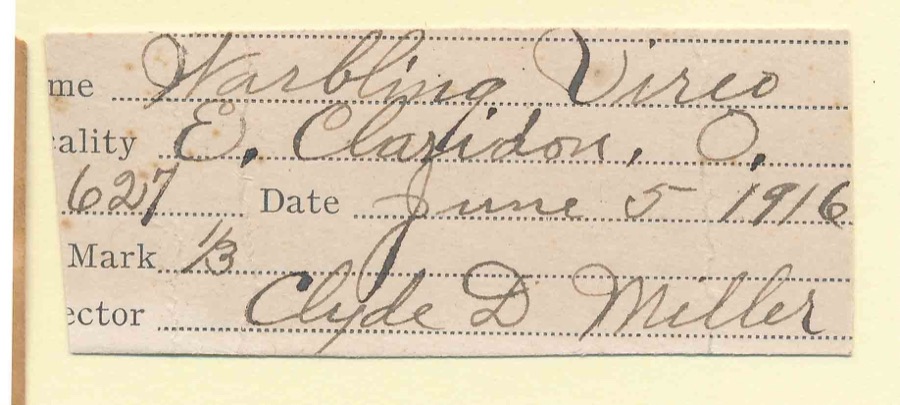 me Warbling Vireo
ality E. Claridon, O.
627 Date June 5 1916
Mark 1/3
ector Clyde D Miller